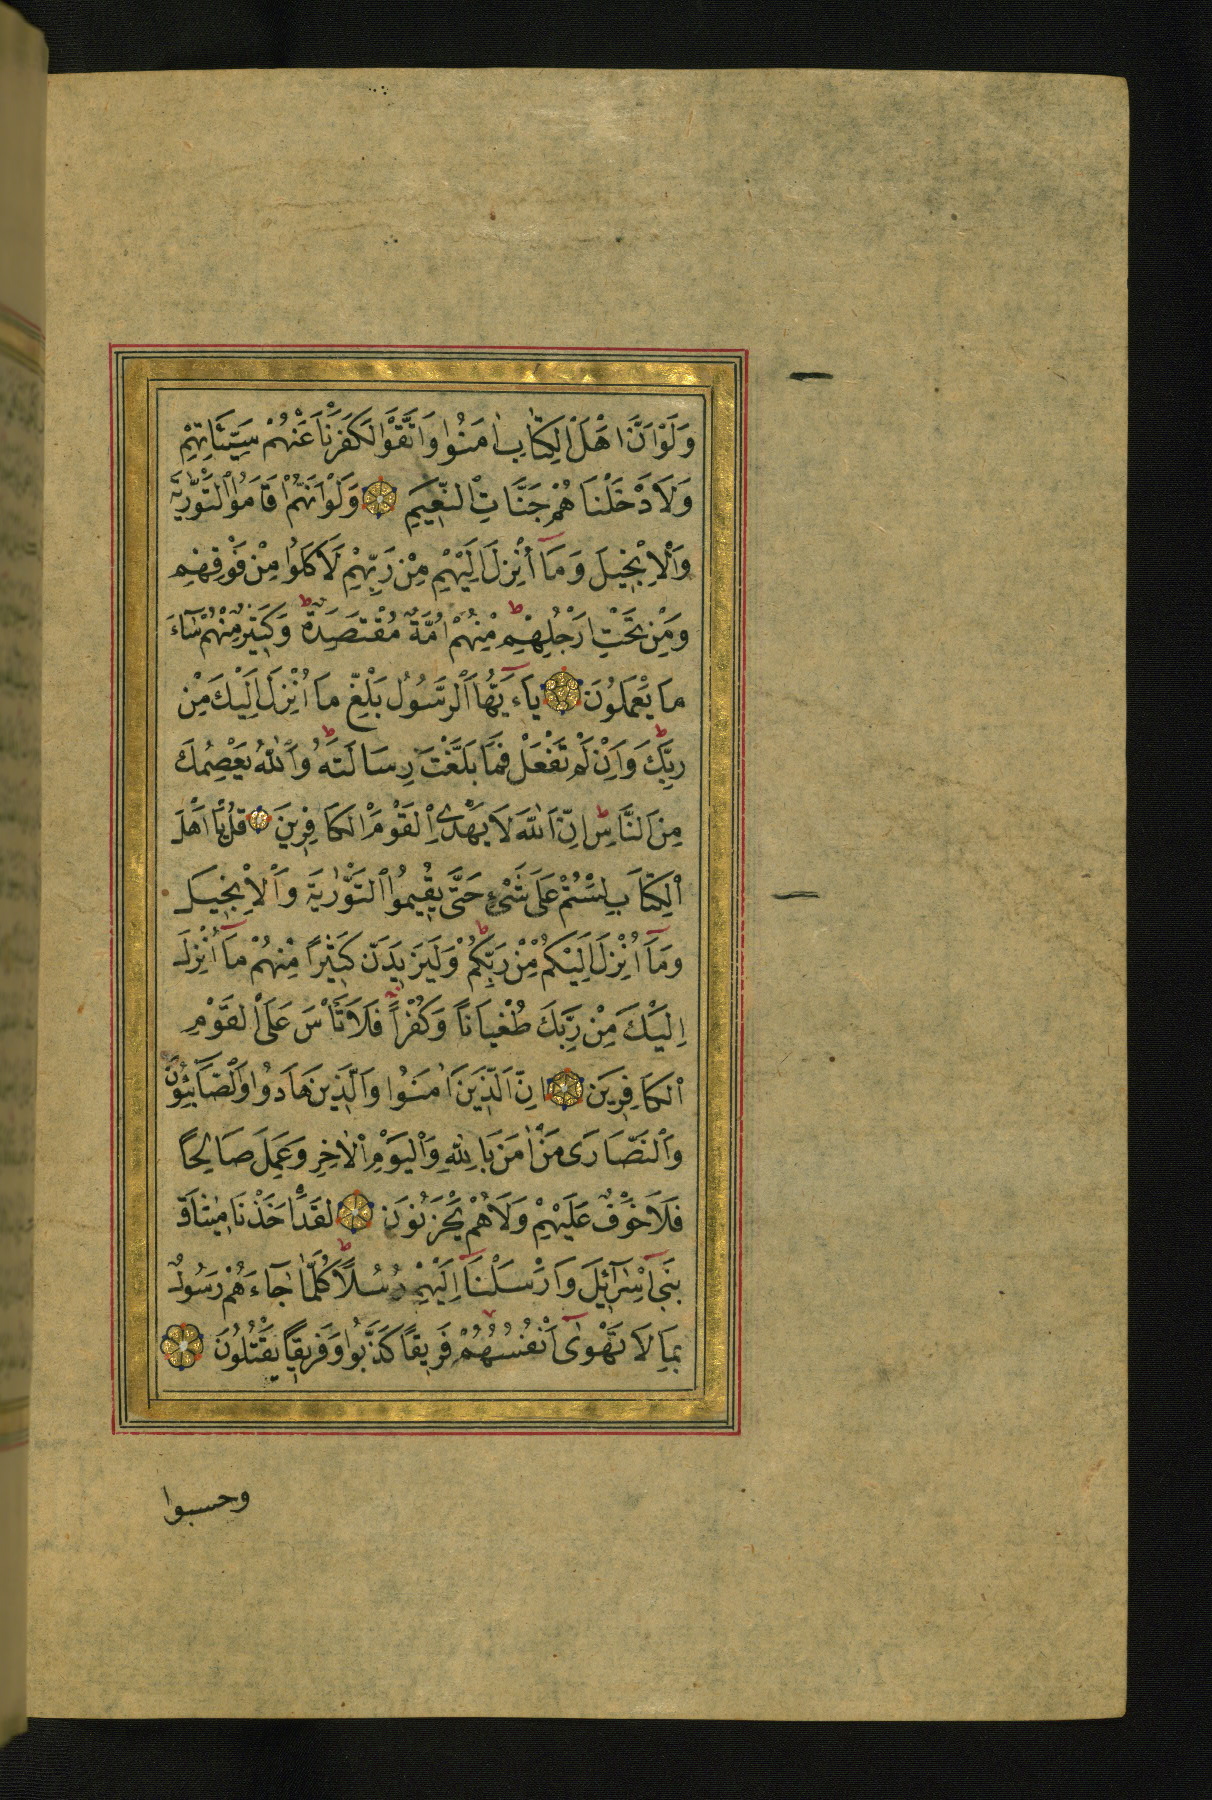 وَلَوْ اَنَّ اَهْلَ الْكِتَابِ اٰمَنُوا وَاتَّقَوْا لَكَفَّرْنَا عَنْهُمْ سَيِّئَاتِهِمْ
وَلَاَدْخَلْنَاهُمْ جَنَّاتِ النَّعِيمِ وَلَوْ اَنَّهُمْ اَقَامُوا التَّوْرٰيةَ
وَالْاِنْجِيلَ وَمَآ اُنْزِلَ اِلَيْهِمْ مِنْ رَبِّهِمْ لَاَكَلُوا مِنْ فَوْقِهِمْ
وَمِنْ تَحْتِ اَرْجُلِهِمْ مِنْهُمْ اُمَّةٌ مُقْتَصِدَةٌ وَكَثِيرٌ مِنْهُمْ سَآءَ
مَا يَعْمَلُونَ يَآءَيُّهَا الرَّسُولُ بَلِّغْ مَا اُنْزِلَ اِلَيْكَ مِنْ
رَبِّكَ وَاِنْ لَمْ تَفْعَلْ فَمَا بَلَّغْتَ رِسَالَتَهُ وَاللّٰهُ يَعْصِمُكَ
مِنَ النَّاسِ اِنَّ اللّٰهَ لَا يَهْدِى الْقَوْمَ الْكَافِرِينَ قُلْ يَا اَهْلَ
الْكِتَابِ لَسْتُمْ عَلَى شَىْءٍ حَتَّى تُقِيمُوا التَّوْرٰيةَ وَالْاِنْجِيلَ
وَمَآ اُنْزِلَ اِلَيْكُمْ مِنْ رَبِّكُمْ وَلَيَزِيدَنَّ كَثِيرًا مِنْهُمْ مَآ اُنْزِلَ
اِلَيْكَ مِنْ رَبِّكَ طُغْيَانًا وَكُفْرًا فَلَا تَأْسَ عَلَى الْقَوْمِ
الْكَافِرِينَ اِنَّ الَّذِينَ اٰمَنُوا وَالَّذِينَ هَادُوا وَالصَّابِئُونَ
وَالنَّصَارَى مَنْ اٰمَنَ بِاللّٰهِ وَالْيَوْمِ الْاٰخِرِ وَعَمِلَ صَالِحًا
فَلَا خَوْفٌ عَلَيْهِمْ وَلَا هُمْ يَحْزَنُونَ لَقَدْ اَخَذْنَا مِيثَاقَ
بَنِىٓ اِسْرَآئِيلَ وَاَرْسَلْنَآ اِلَيْهِمْ رُسُلًا كُلَّمَا جَآءَهُمْ رَسُولٌ
بِمَا لَا تَهْوٰىٓ اَنْفُسُهُمْ فَرِيقًا كَذَّبُوا وَفَرِيقًا يَقْتُلُونَ
وحسبوا